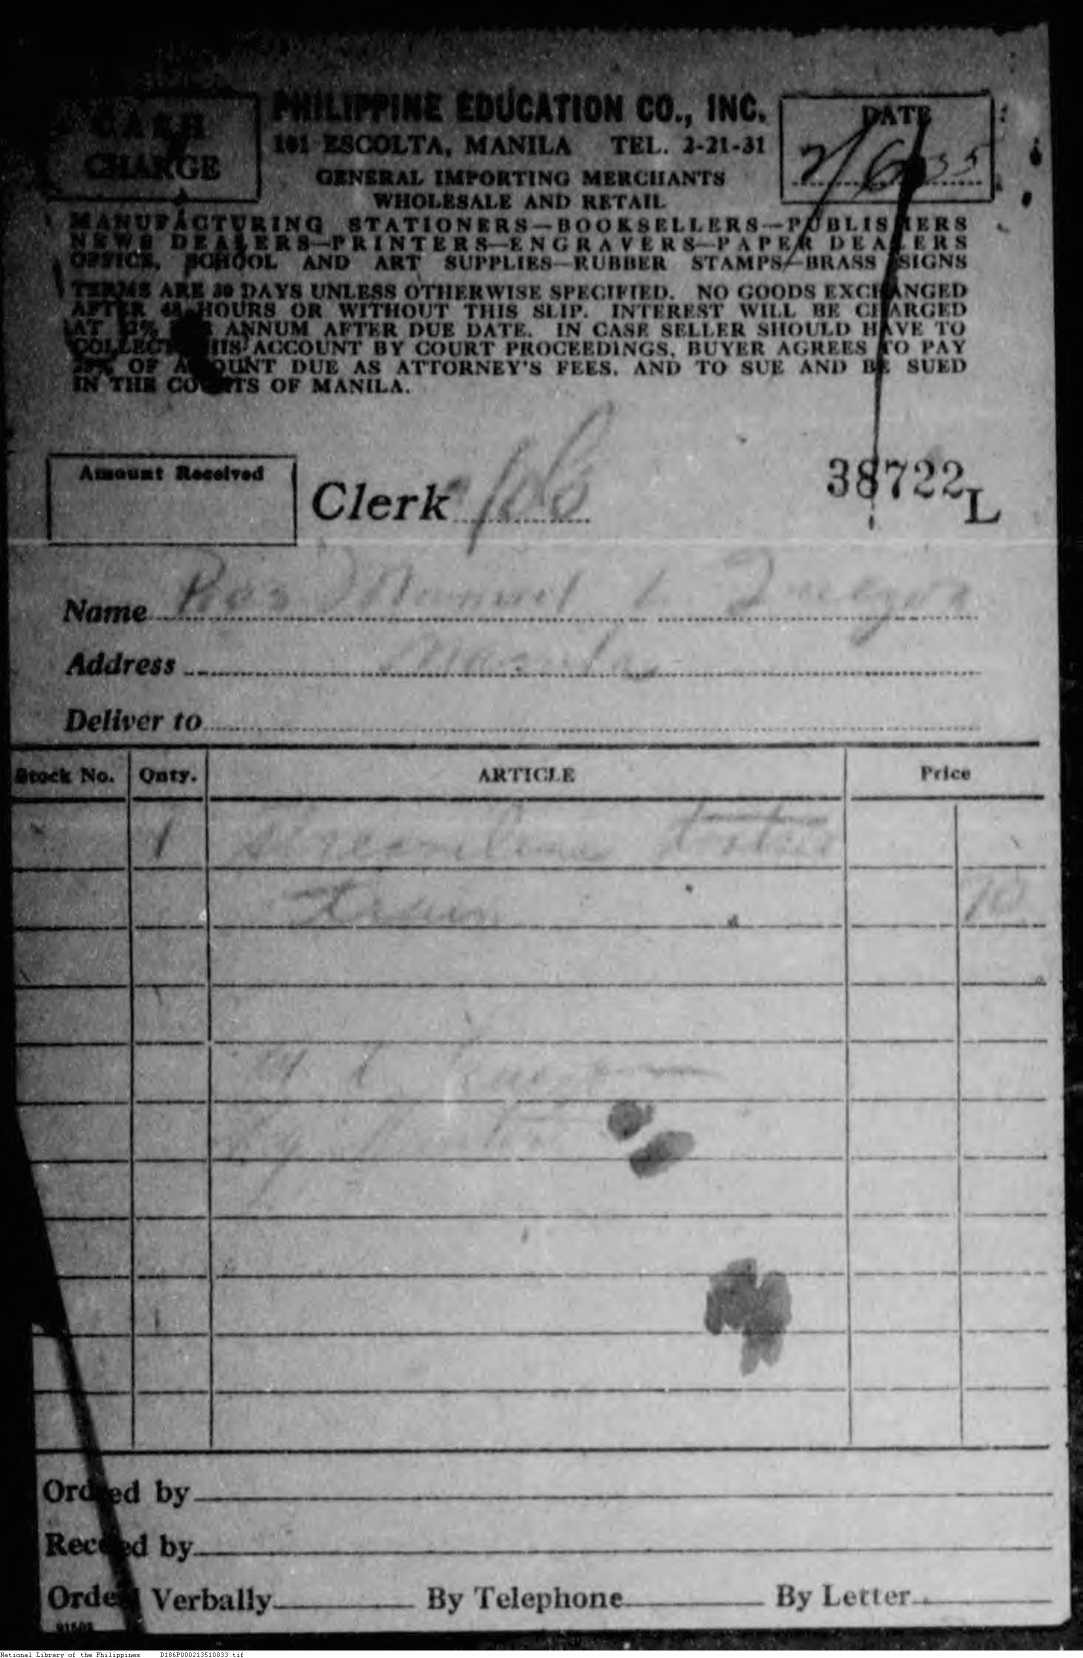 CASH
CHARGE
PHILIPPINE EDUCATION CO., INC.
101 ESCOLTA, MANILA TEL. 2-21-31
GENERAL IMPORTING MERCHANTS
WHOLESALE AND RETAIL
DATE
2/6/35
MANUFACTURING STATIONERS—BOOKSELLERS—PUBLISHERS
NEWS DEALERS—PRINTERS—ENGRAVERS—PAPER DEALERS
OFFICE, SCHOOL AND ART SUPPLIES—RUBBER STAMPS—BRASS SIGNS
TERMS ARE 30 DAYS UNLESS OTHERWISE SPECIFIED. NO GOODS EXCHANGED
AFTER 48 HOURS OR WITHOUT THIS SLIP. INTEREST WILL BE CHARGED
AT 12% PER ANNUM AFTER DUE DATE. IN CASE SELLER SHOULD HAVE TO
COLLECT THIS ACCOUNT BY COURT PROCEEDINGS, BUYER AGREES TO PAY
25% OF AMOUNT DUE AS ATTORNEY'S FEES, AND TO SUE AND BE SUED
IN THE COURTS OF MANILA.
Amount Received
Clerk 106
38722L
Name Pres Manuel L. Quezon
Address Manila
Deliver to
Stock No. Qnty. ARTICLE Price
1 Streamline
train 70
M L Quezon
by
Ordered by
Received by
Order Verbally By Telephone By Letter
91502
National Library of the Philippines D186P000213510833.tif